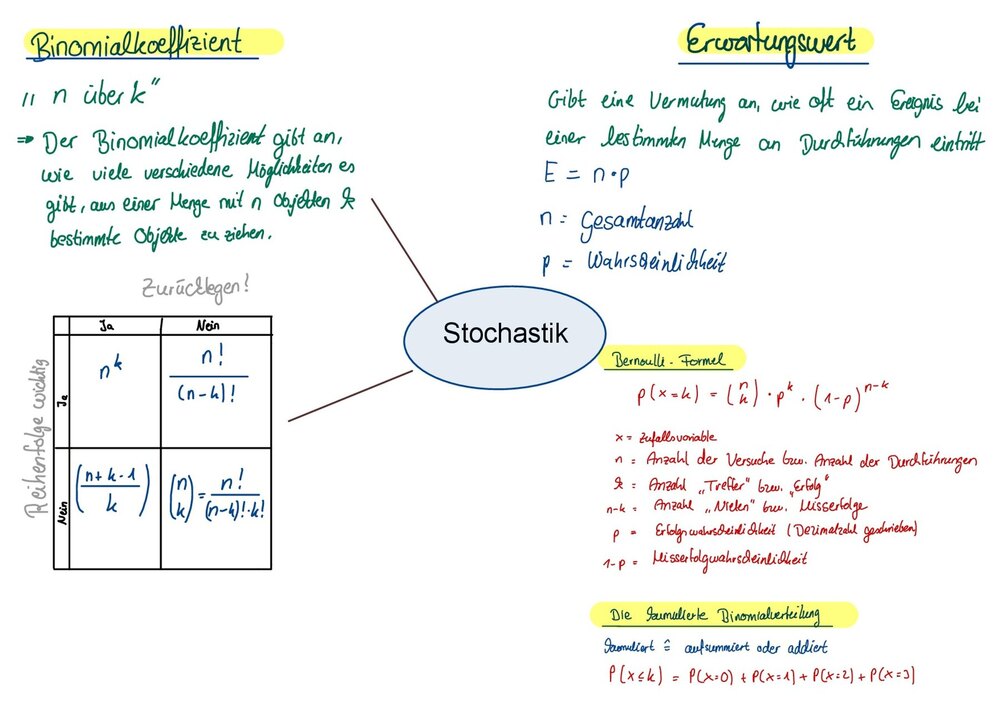 Binomialkoeffizient
„ n über k"
⇒ Der Binomialkoeffizient gibt an,
wie viele verschiedene Möglichkeiten es
gibt, aus einer Menge mit n Objekten k
bestimmte Objekte zu ziehen.
Zurücklegen!
Ja Nein
Reihenfolge wichtig
Ja
n^k
n! / (n-k)!
Nein
((n+k-1) / k)
(n k) = n! / ((n-k)!·k!)
Stochastik
Erwartungswert
Gibt eine Vermutung an, wie oft ein Ereignis bei
einer bestimmten Menge an Durchführungen eintritt
E = n·p
n = Gesamtanzahl
p = Wahrscheinlichkeit
Bernoulli-Formel
p(x=k) = (n k) · p^k · (1-p)^(n-k)
x = Zufallsvariable
n = Anzahl der Versuche bzw. Anzahl der Durchführungen
k = Anzahl „Treffer" bzw. „Erfolg"
n-k = Anzahl „Nieten" bzw. Misserfolge
p = Erfolgswahrscheinlichkeit (Dezimalzahl geschrieben)
1-p = Misserfolgwahrscheinlichkeit
Die kumulierte Binomialverteilung
kumuliert ≙ aufsummiert oder addiert
P(x≤k) = P(x=0) + P(x=1) + P(x=2) + P(x=3)